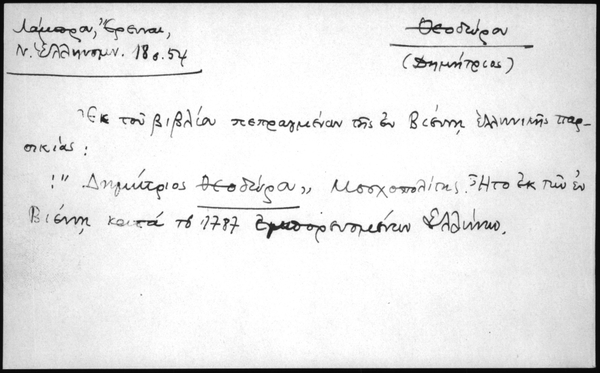 Λάμπρου, Ἔρευναι,
Ν. Ἑλληνομν. 18 σ. 54
Θεοδώρου
(Δημήτριος)
Ἐκ τοῦ βιβλίου πεπραγμένων τῆς ἐν Βιέννῃ ἑλληνικῆς παρ-
οικίας:
!" Δημήτριος Θεοδώρου,, Μοσχοπολίτης. Ἦτο ἐκ τῶν ἐν
Βιέννῃ κατὰ τὸ 1787 ἐμπορευομένων Ἑλλήνων.